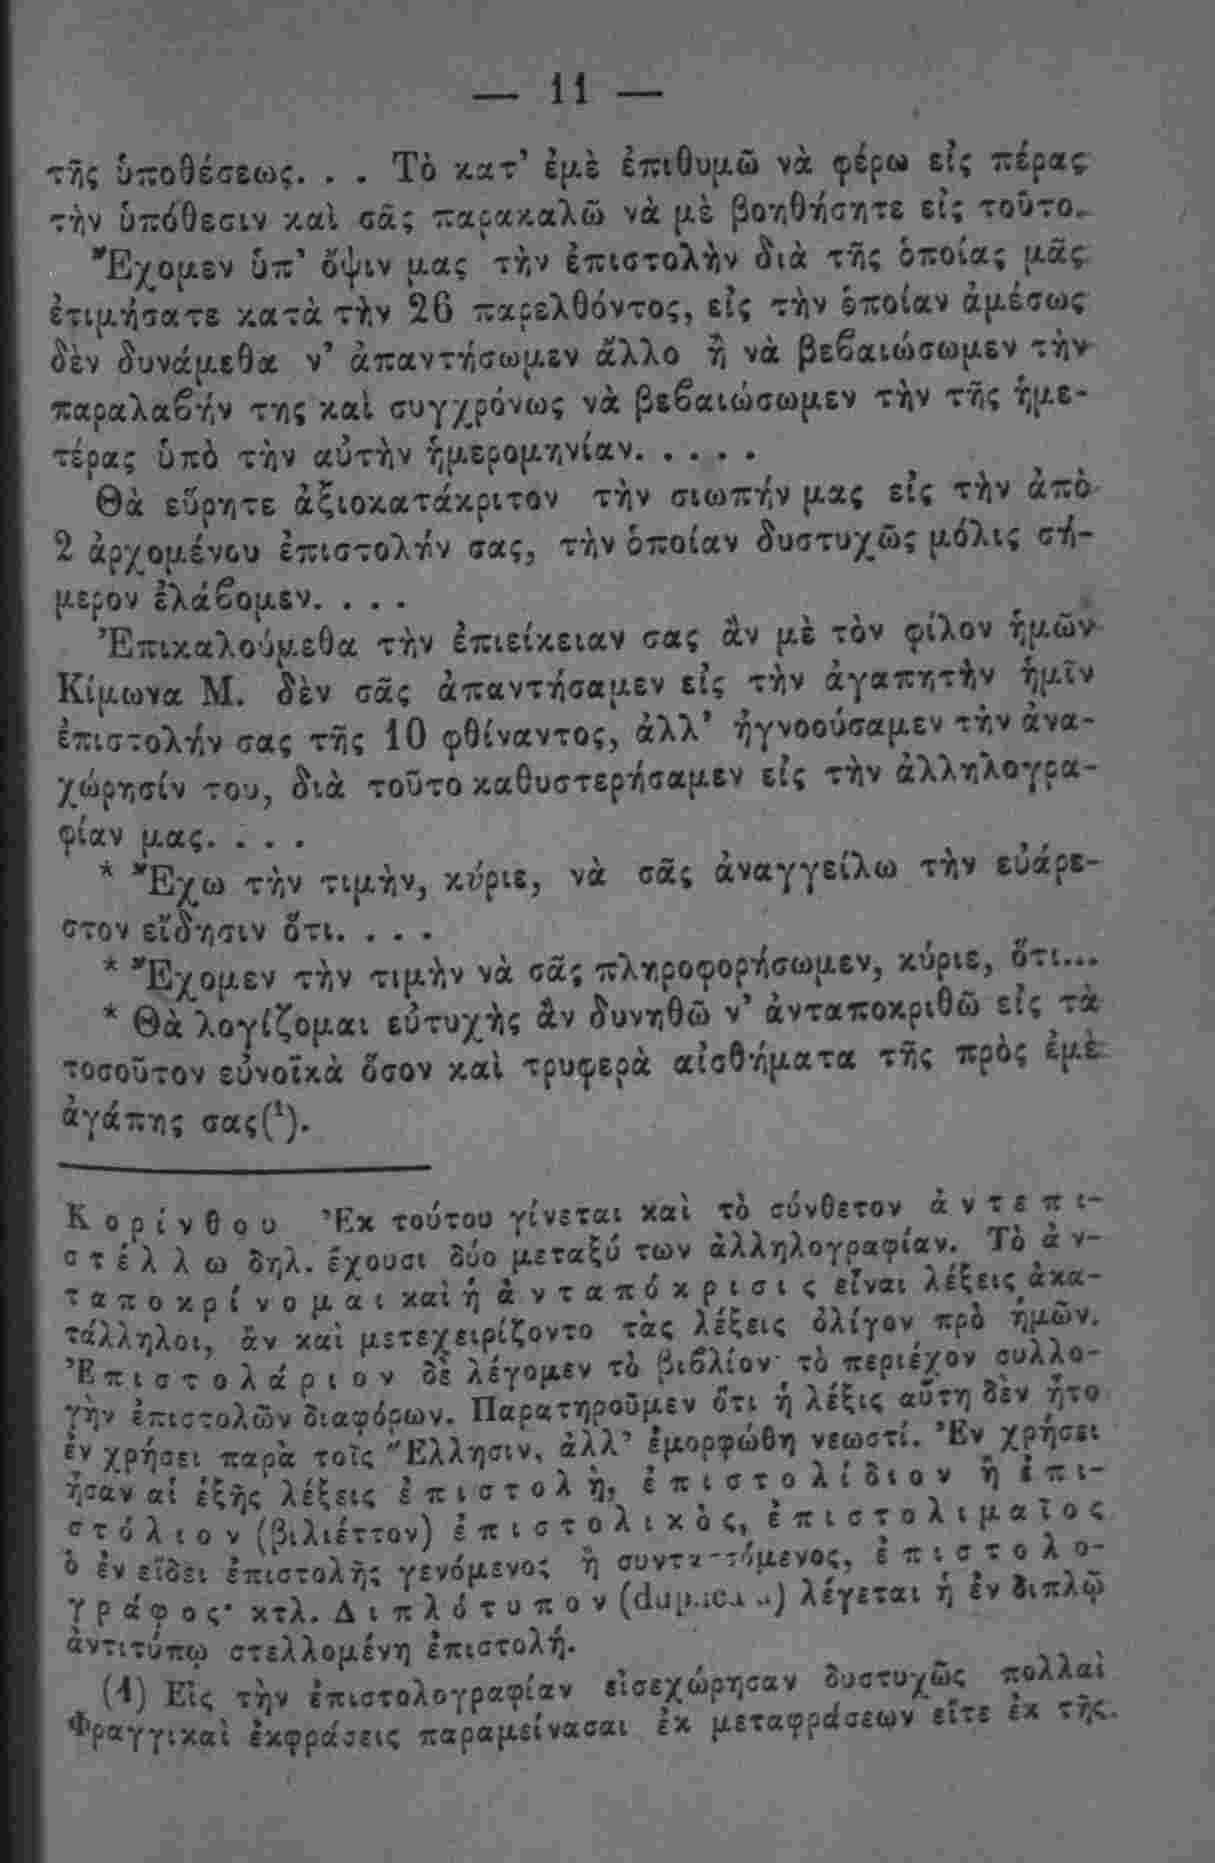 — 11 —
τῆς ὑποθέσεως. . . Τὸ κατ’ ἐμὲ ἐπιθυμῶ νὰ φέρω εἰς πέρας
τὴν ὑπόθεσιν καὶ σᾶς παρακαλῶ νὰ μὲ βοηθήσητε εἰς τοῦτο.
Ἔχομεν ὑπ’ ὄψιν μας τὴν ἐπιστολὴν διὰ τῆς ὁποίας μᾶς
ἐτιμήσατε κατὰ τὴν 26 παρελθόντος, εἰς τὴν ὁποίαν ἀμέσως
δὲν δυνάμεθα ν’ ἀπαντήσωμεν ἄλλο ἢ νὰ βεβαιώσωμεν τὴν
παραλαβήν της καὶ συγχρόνως νὰ βεβαιώσωμεν τὴν τῆς ἡμε-
τέρας ὑπὸ τὴν αὐτὴν ἡμερομηνίαν. . . . .
Θὰ εὕρητε ἀξιοκατάκριτον τὴν σιωπήν μας εἰς τὴν ἀπὸ
2 ἀρχομένου ἐπιστολήν σας, τὴν ὁποίαν δυστυχῶς μόλις σή-
μερον ἐλάβομεν. . . .
Ἐπικαλούμεθα τὴν ἐπιείκειαν σας ἂν μὲ τὸν φίλον ἡμῶν
Κίμωνα Μ. δὲν σᾶς ἀπαντήσαμεν εἰς τὴν ἀγαπητὴν ἡμῖν
ἐπιστολήν σας τῆς 10 φθίναντος, ἀλλ’ ἠγνοούσαμεν τὴν ἀνα-
χώρησίν του, διὰ τοῦτο καθυστερήσαμεν εἰς τὴν ἀλληλογρα-
φίαν μας. . . .
* Ἔχω τὴν τιμὴν, κύριε, νὰ σᾶς ἀναγγείλω τὴν εὐάρε-
στον εἴδησιν ὅτι. . . .
* Ἔχομεν τὴν τιμὴν νὰ σᾶς πληροφορήσωμεν, κύριε, ὅτι...
* Θὰ λογίζομαι εὐτυχὴς ἂν δυνηθῶ ν’ ἀνταποκριθῶ εἰς τὰ
τοσοῦτον εὐνοϊκὰ ὅσον καὶ τρυφερὰ αἰσθήματα τῆς πρὸς ἐμὲ
ἀγάπης σας(¹).
Κορίνθου Ἐκ τούτου γίνεται καὶ τὸ σύνθετον ἀντεπι-
στέλλω δηλ. ἔχουσι δύο μεταξύ των ἀλληλογραφίαν. Τὸ ἀν-
ταποκρίνομαι καὶ ἡ ἀνταπόκρισις εἶναι λέξεις ἀκα-
τάλληλοι, ἂν καὶ μετεχειρίζοντο τὰς λέξεις ὀλίγον πρὸ ἡμῶν.
Ἐπιστολάριον δὲ λέγομεν τὸ βιβλίον τὸ περιέχον συλλο-
γὴν ἐπιστολῶν διαφόρων. Παρατηροῦμεν ὅτι ἡ λέξις αὕτη δὲν ἦτο
ἐν χρήσει παρὰ τοῖς Ἕλλησιν, ἀλλ’ ἐμορφώθη νεωστί. Ἐν χρήσει
ἦσαν αἱ ἑξῆς λέξεις ἐπιστολὴ, ἐπιστολίδιον ἢ ἐπι-
στόλιον (βιλιέττον) ἐπιστολικὸς, ἐπιστολιμαῖος
ὁ ἐν εἴδει ἐπιστολῆς γενόμενος ἢ συντασσόμενος, ἐπιστολο-
γράφος· κτλ. Διπλότυπον λέγεται ἡ ἐν διπλῷ
ἀντιτύπῳ στελλομένη ἐπιστολή.
(1) Εἰς τὴν ἐπιστολογραφίαν εἰσεχώρησαν δυστυχῶς πολλαὶ
Φραγγικαὶ ἐκφράσεις παραμείνασαι ἐκ μεταφράσεων εἴτε ἐκ τῆς